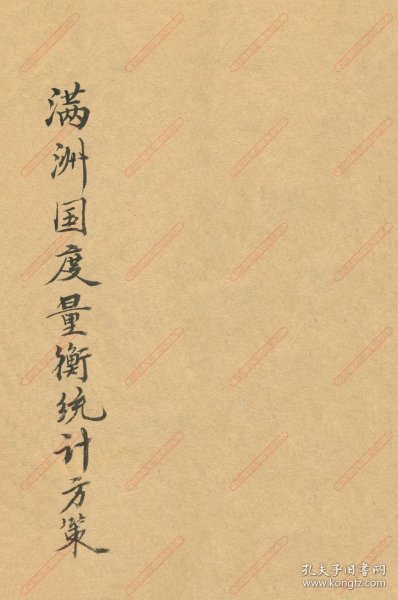 满洲国度量衡统计方策
孔夫子旧书网
www.kongfz.com